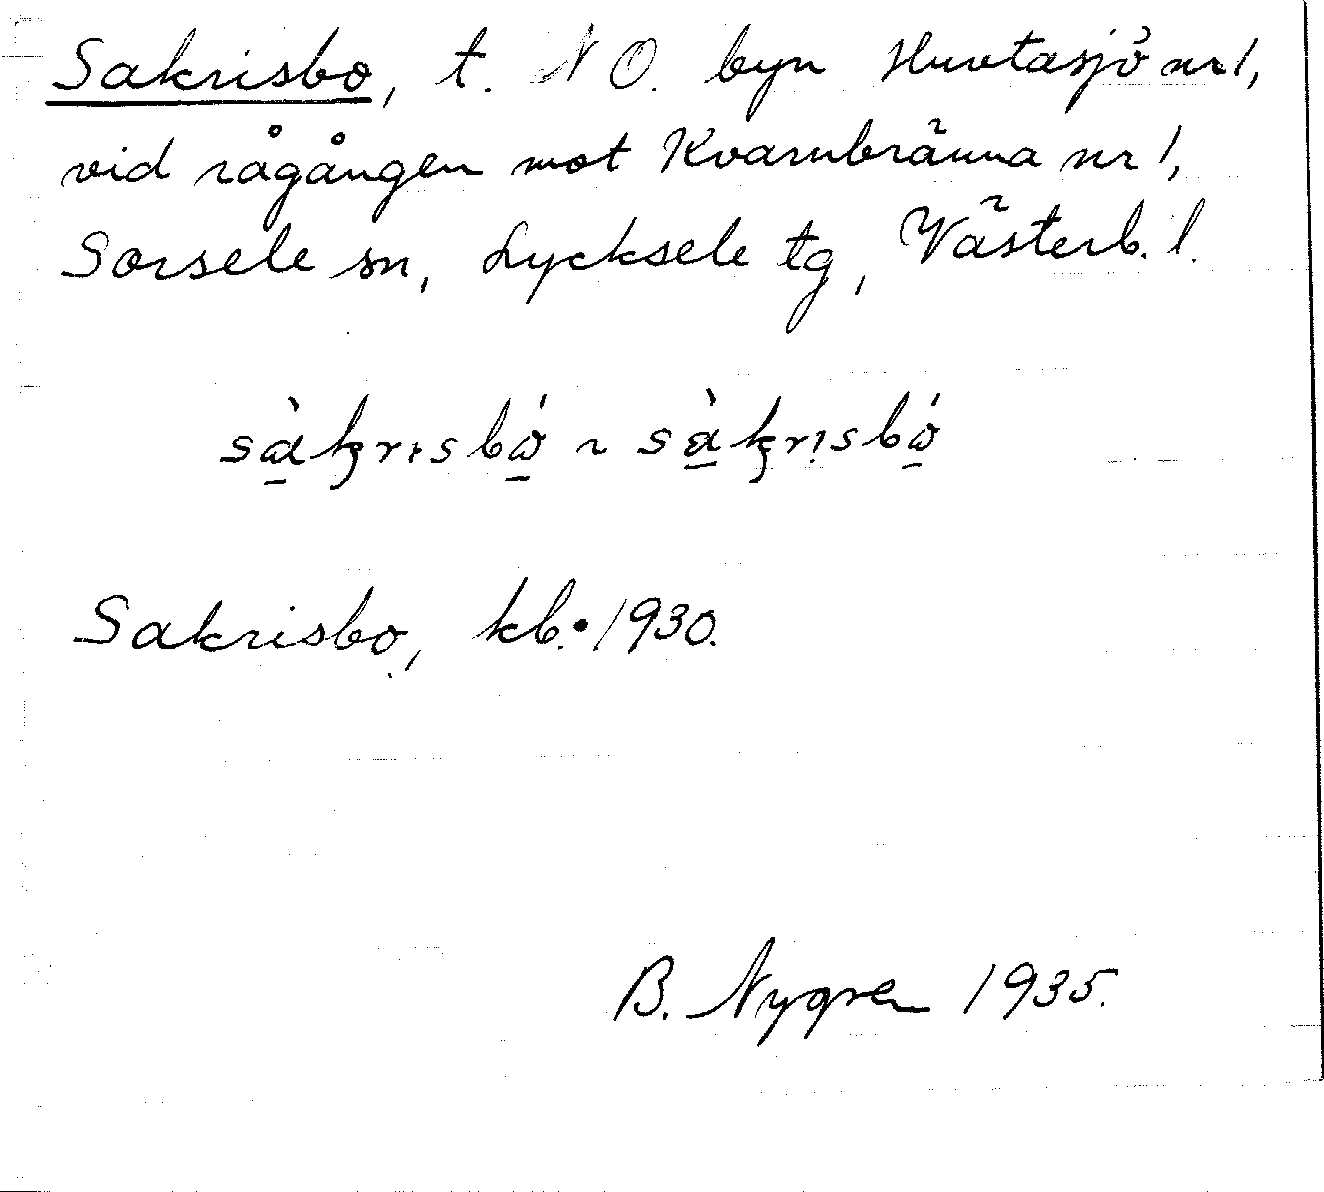 Sakrisbo, t. NO. byn Huvtasjö nr 1,
vid rågången mot Kvarnbränna nr 1,
Sorsele sn, Lycksele tg, Västerb. l.
Sakrisbo, kb. 1930.
B. Nygren 1935.